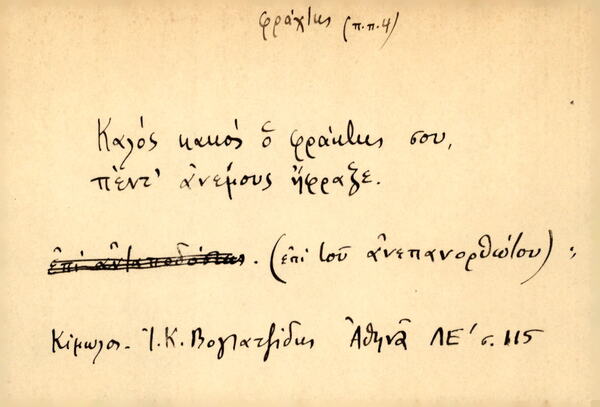 φράχτης (π.π.4)
Καλός κακός ὁ φράκτης σου,
πέντ' ἀνέμους ἤφραξε.
ἐπὶ ἀνταποδόσεως. (ἐπὶ τοῦ ἀνεπανορθώτου);
Κίμωλος. Ἰ. Κ. Βογιατζίδης Ἀθηνᾶ ΛΕ' σ. 115